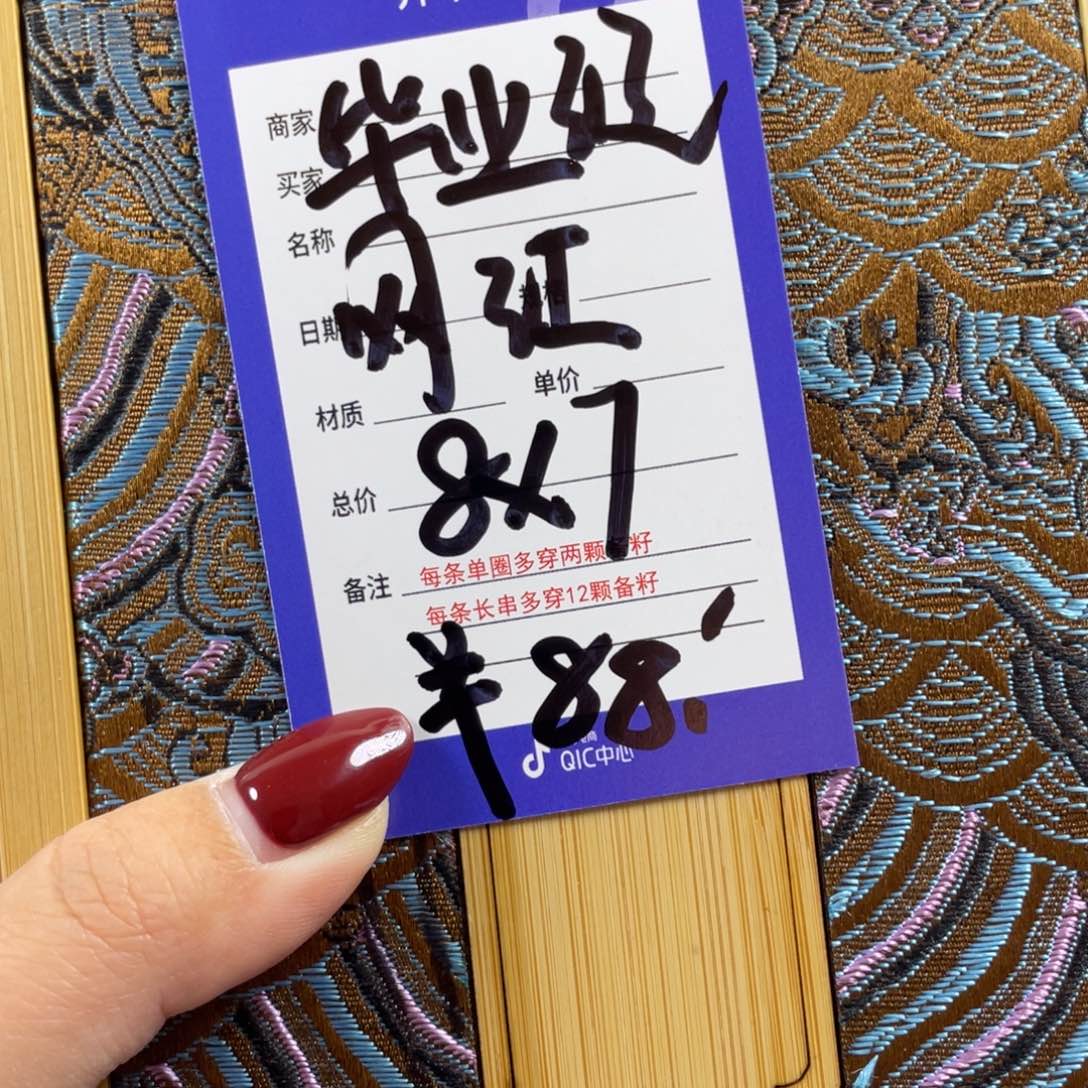 商家 毕业证
买家
名称
网证
日期
材质 单价
8x7
总价
备注 每条单圈多穿两颗 籽
每条长串多穿12颗备籽
¥88.
QIC中心